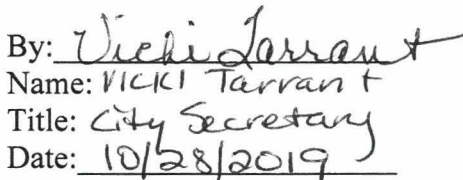 By: Vicki Tarrant
Name: VICKI Tarrant
Title: City Secretary
Date: 10/28/2019